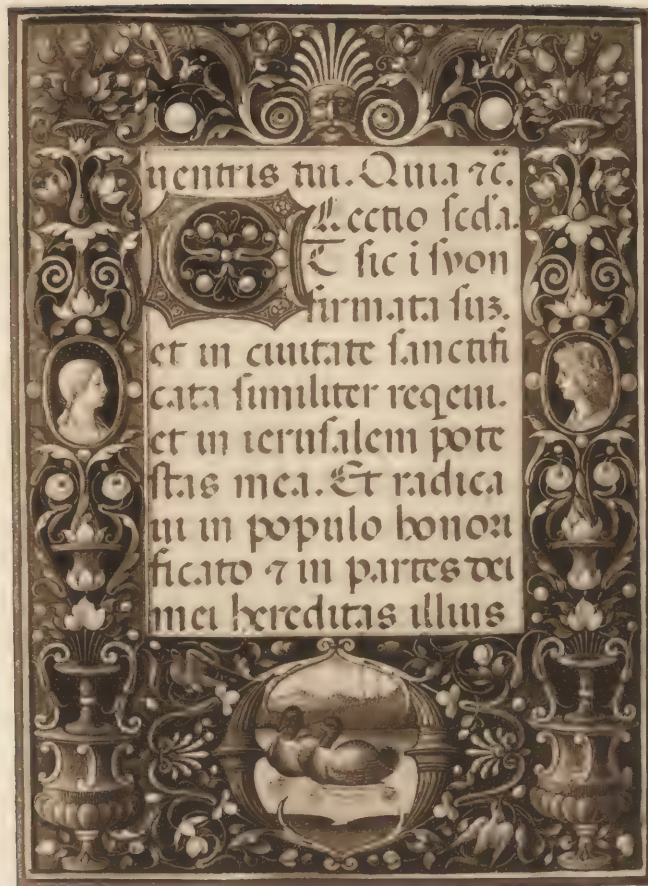 uentris tui. Quia ⁊c̄.
Lectio scd̄a.
Et sic i syon
firmata suꝫ.
et in ciuitate sanctifi
cata similiter reqeui.
et in ierusalem pote
stas mea. Et radica
ui in populo honori
ficato ⁊ in partes dei
mei hereditas illius